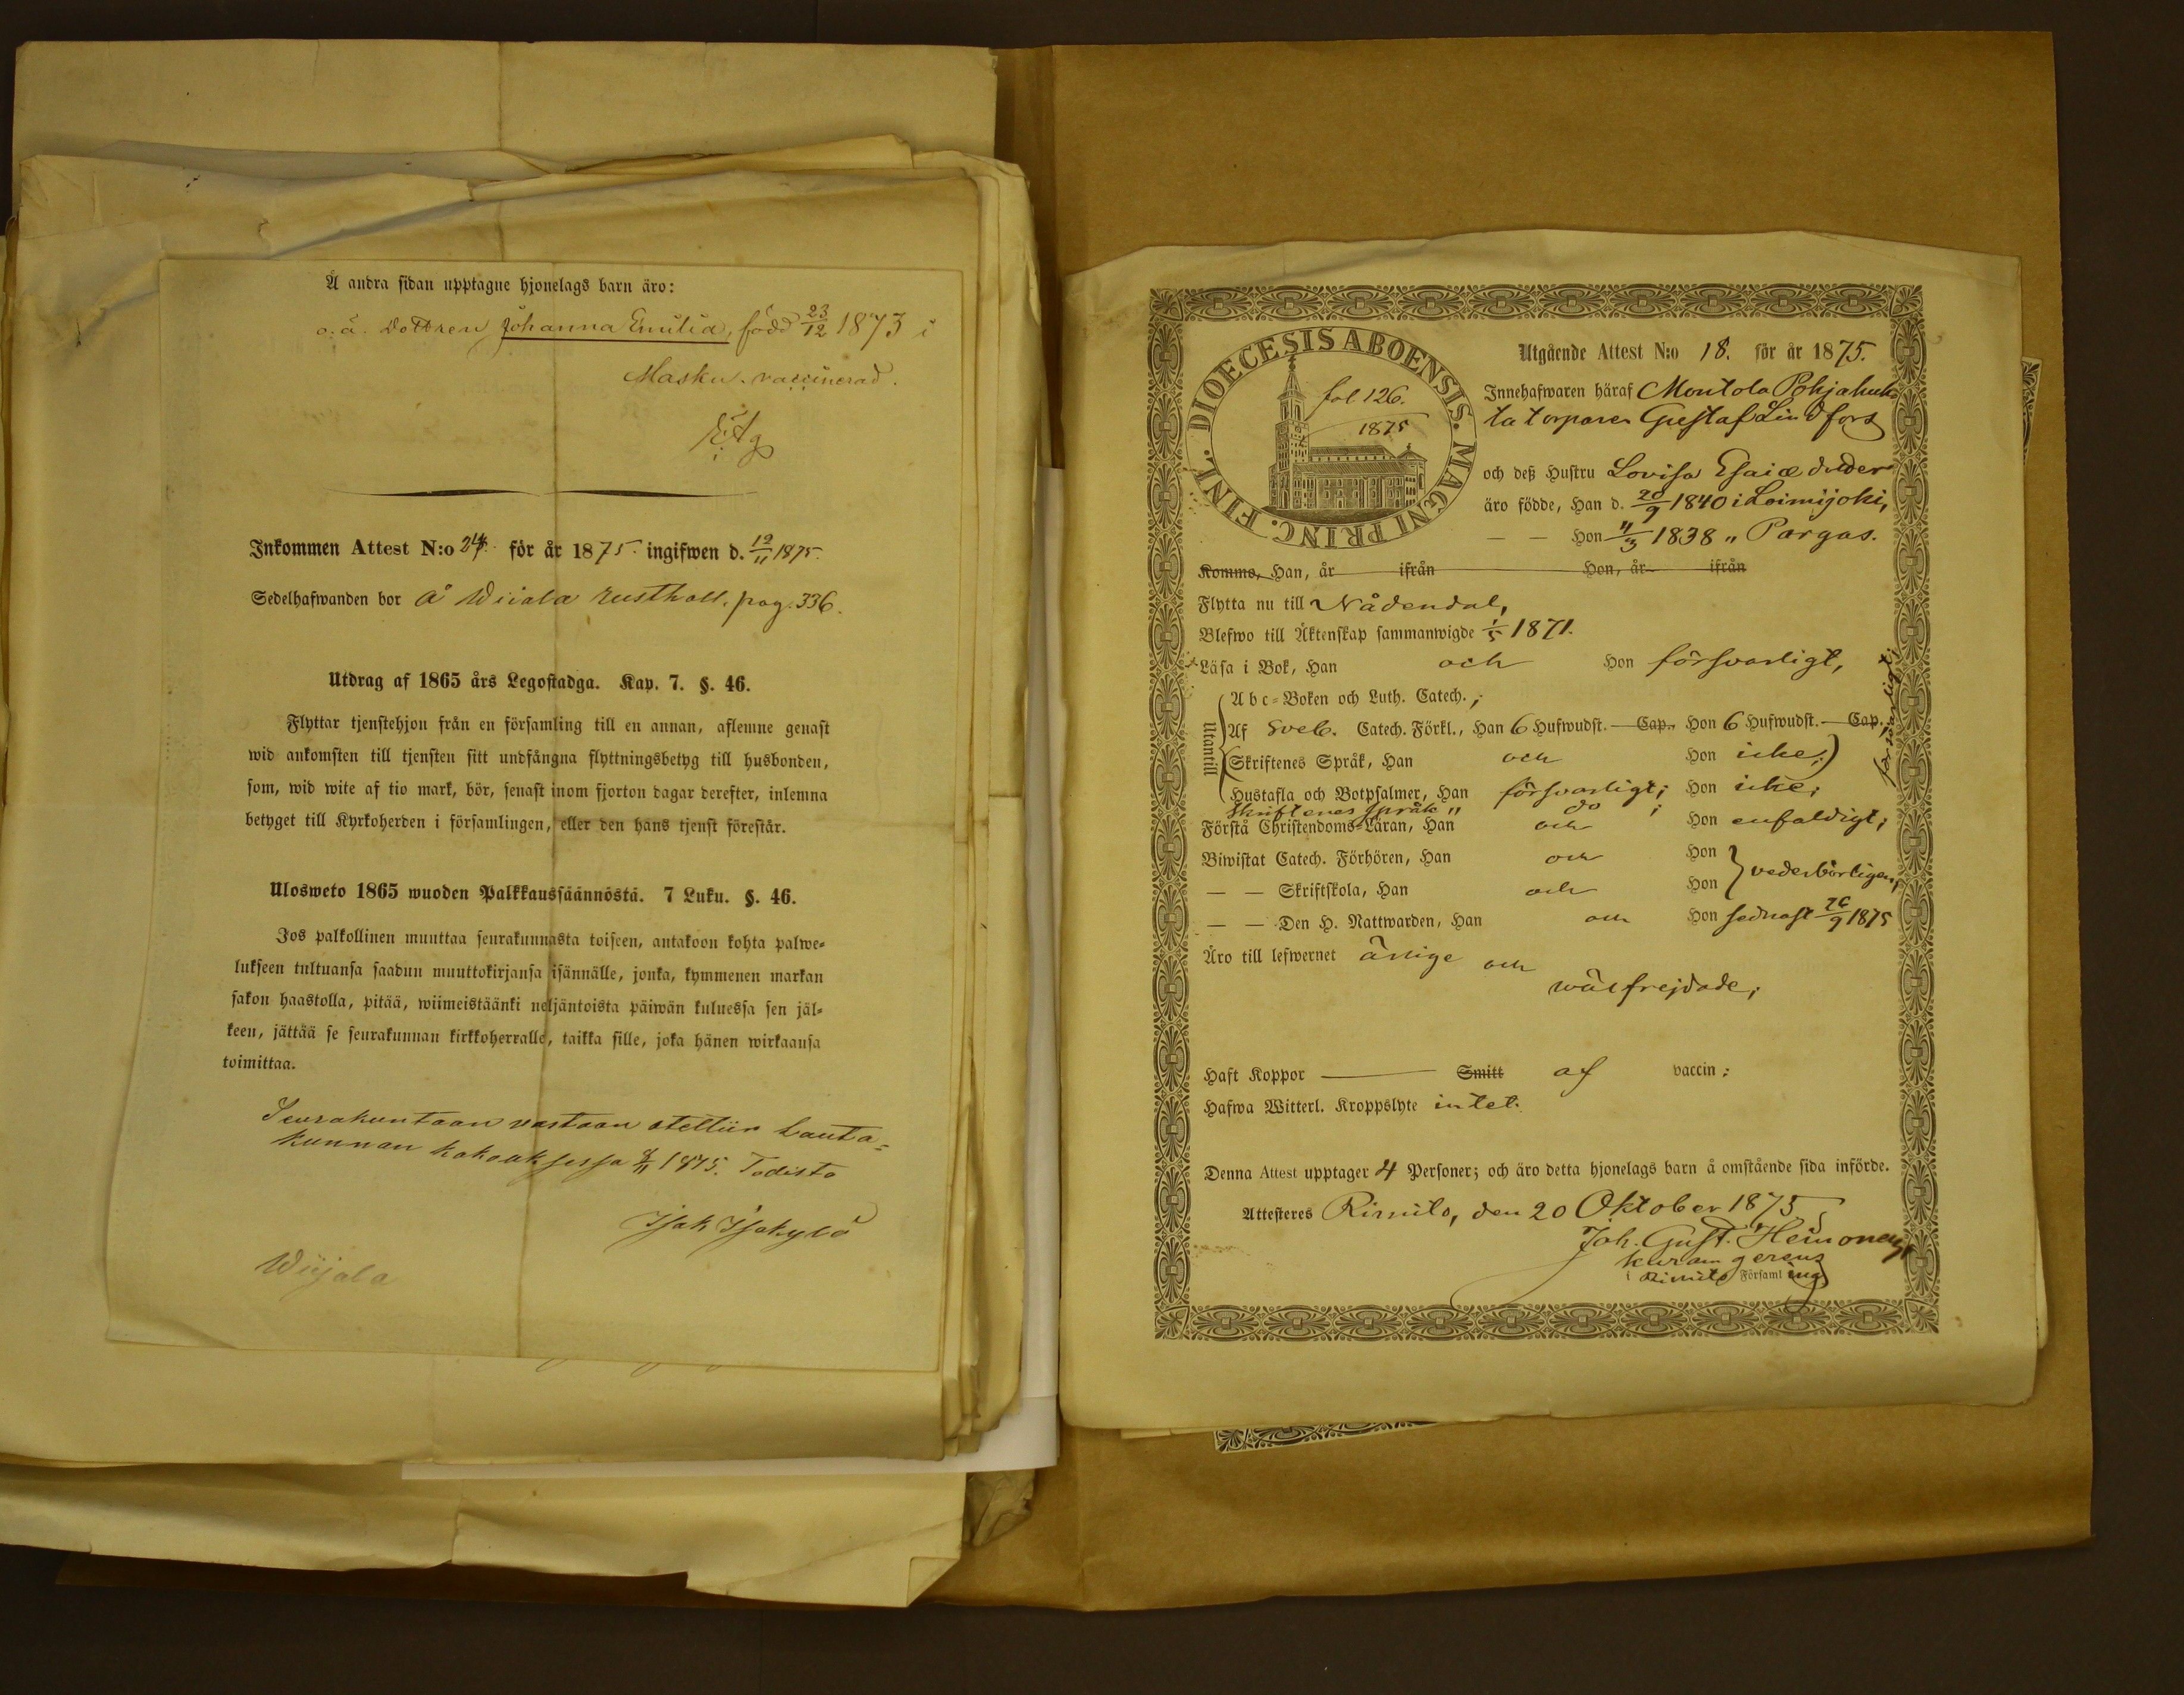 Å andra sidan upptagne hjonelags barn äro:
o. ä. dottren Johanna Emilia, född 23/12 1873 i
Masku. vaccinerad.
Inkommen Attest N:o 24. för år 1875. ingifwen d. 12/11 1875.
Sedelhafwanden bor å Wiiala rusthåll. pag. 336.
Utdrag af 1865 års Legostadga. Kap. 7. §. 46.
Flyttar tjenstehjon från en församling till en annan, aflemne genast
wid ankomsten till tjensten sitt undfångna flyttningsbetyg till husbonden,
som, wid wite af tio mark, bör, senast inom fjorton dagar derefter, inlemna
betyget till Kyrkoherden i församlingen, eller den hans tjenst förestår.
Ulosweto 1865 wuoden Palkkaussäännöstä. 7 Luku. §. 46.
Jos palkollinen muuttaa seurakunnasta toiseen, antakoon kohta palwe=
lukseen tultuansa saadun muuttokirjansa isännälle, jonka, kymmenen markan
sakon haastolla, pitää, wiimeistäänki neljäntoista päiwän kuluessa sen jäl=
keen, jättää se seurakunnan kirkkoherralle, taikka sille, joka hänen wirkaansa
toimittaa.
Seurakuntaan vastaan otettiin Lauta=
kunnan kokouksessa 8/11 1875. Todista
Isak Isokylä
Wiijala
DIOECESIS ABOENSIS. MAGNI PRINC. FINL.
fol 126.
1875
Utgående Attest N:o 18. för år 1875.
Innehafwaren häraf Montola Pohjahuh
ta torparen Gustaf Lindfors
och deß Hustru Lovisa Esaiæ dotter
äro födde, Han d. 20/9 1840 i Loimijoki,
— — Hon 11/3 1838 " Pargas.
Komme, Han, år ifrån Hon, år ifrån
Flytta nu till Nådendal,
Blefwo till Äktenskap sammanwigde 1/5 1871.
Läsa i Bok, Han och Hon försvarligt,
Utantill
Abc=Boken och Luth. Catech.,
försvarligt;
Af Sveb. Catech. Förkl., Han 6 Hufwudst. — Cap. Hon 6 Hufwudst. — Cap.
Skriftenes Språk, Han och Hon icke;
Hustafla och Botpsalmer, Han försvarligt; Hon icke;
Skriftenes språk " do ;
Förstå Christendoms=Läran, Han och Hon enfaldigt;
Biwistat Catech. Förhören, Han och Hon
— — Skriftskola, Han och Hon vederbörligen,
— — Den H. Nattwarden, Han och Hon sednast 26/9 1875
Äro till lefwernet ärlige och
wälfrejdade;
Haft Koppor — Smitt af vaccin:
Hafwa Witterl. Kroppslyte intet.
Denna Attest upptager 4 Personer; och äro detta hjonelags barn å omstående sida införde.
Attesteres Rimito, den 20 Oktober 1875
Joh. Gust. Heimonen,
kuram gerens
i Rimito Församling